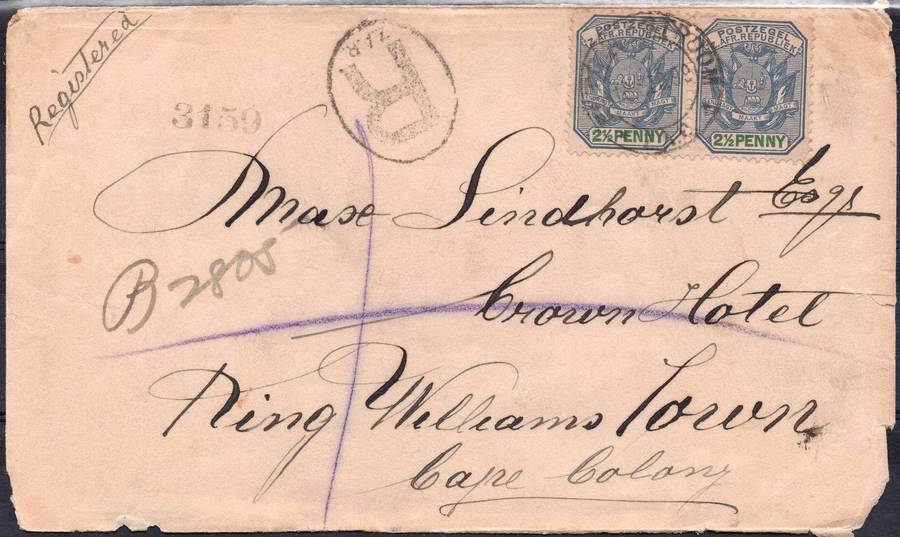 Registered
3159
R
Z.A.R.
POSTZEGEL
Z. AFR. REPUBLIEK
MAAKT MAGT
2½ PENNY
POSTZEGEL
Z. AFR. REPUBLIEK
MAAKT MAGT
2½ PENNY
Max Lindhorst Esqr
B 2805
Crown Hotel
King Williams Town
Cape Colony